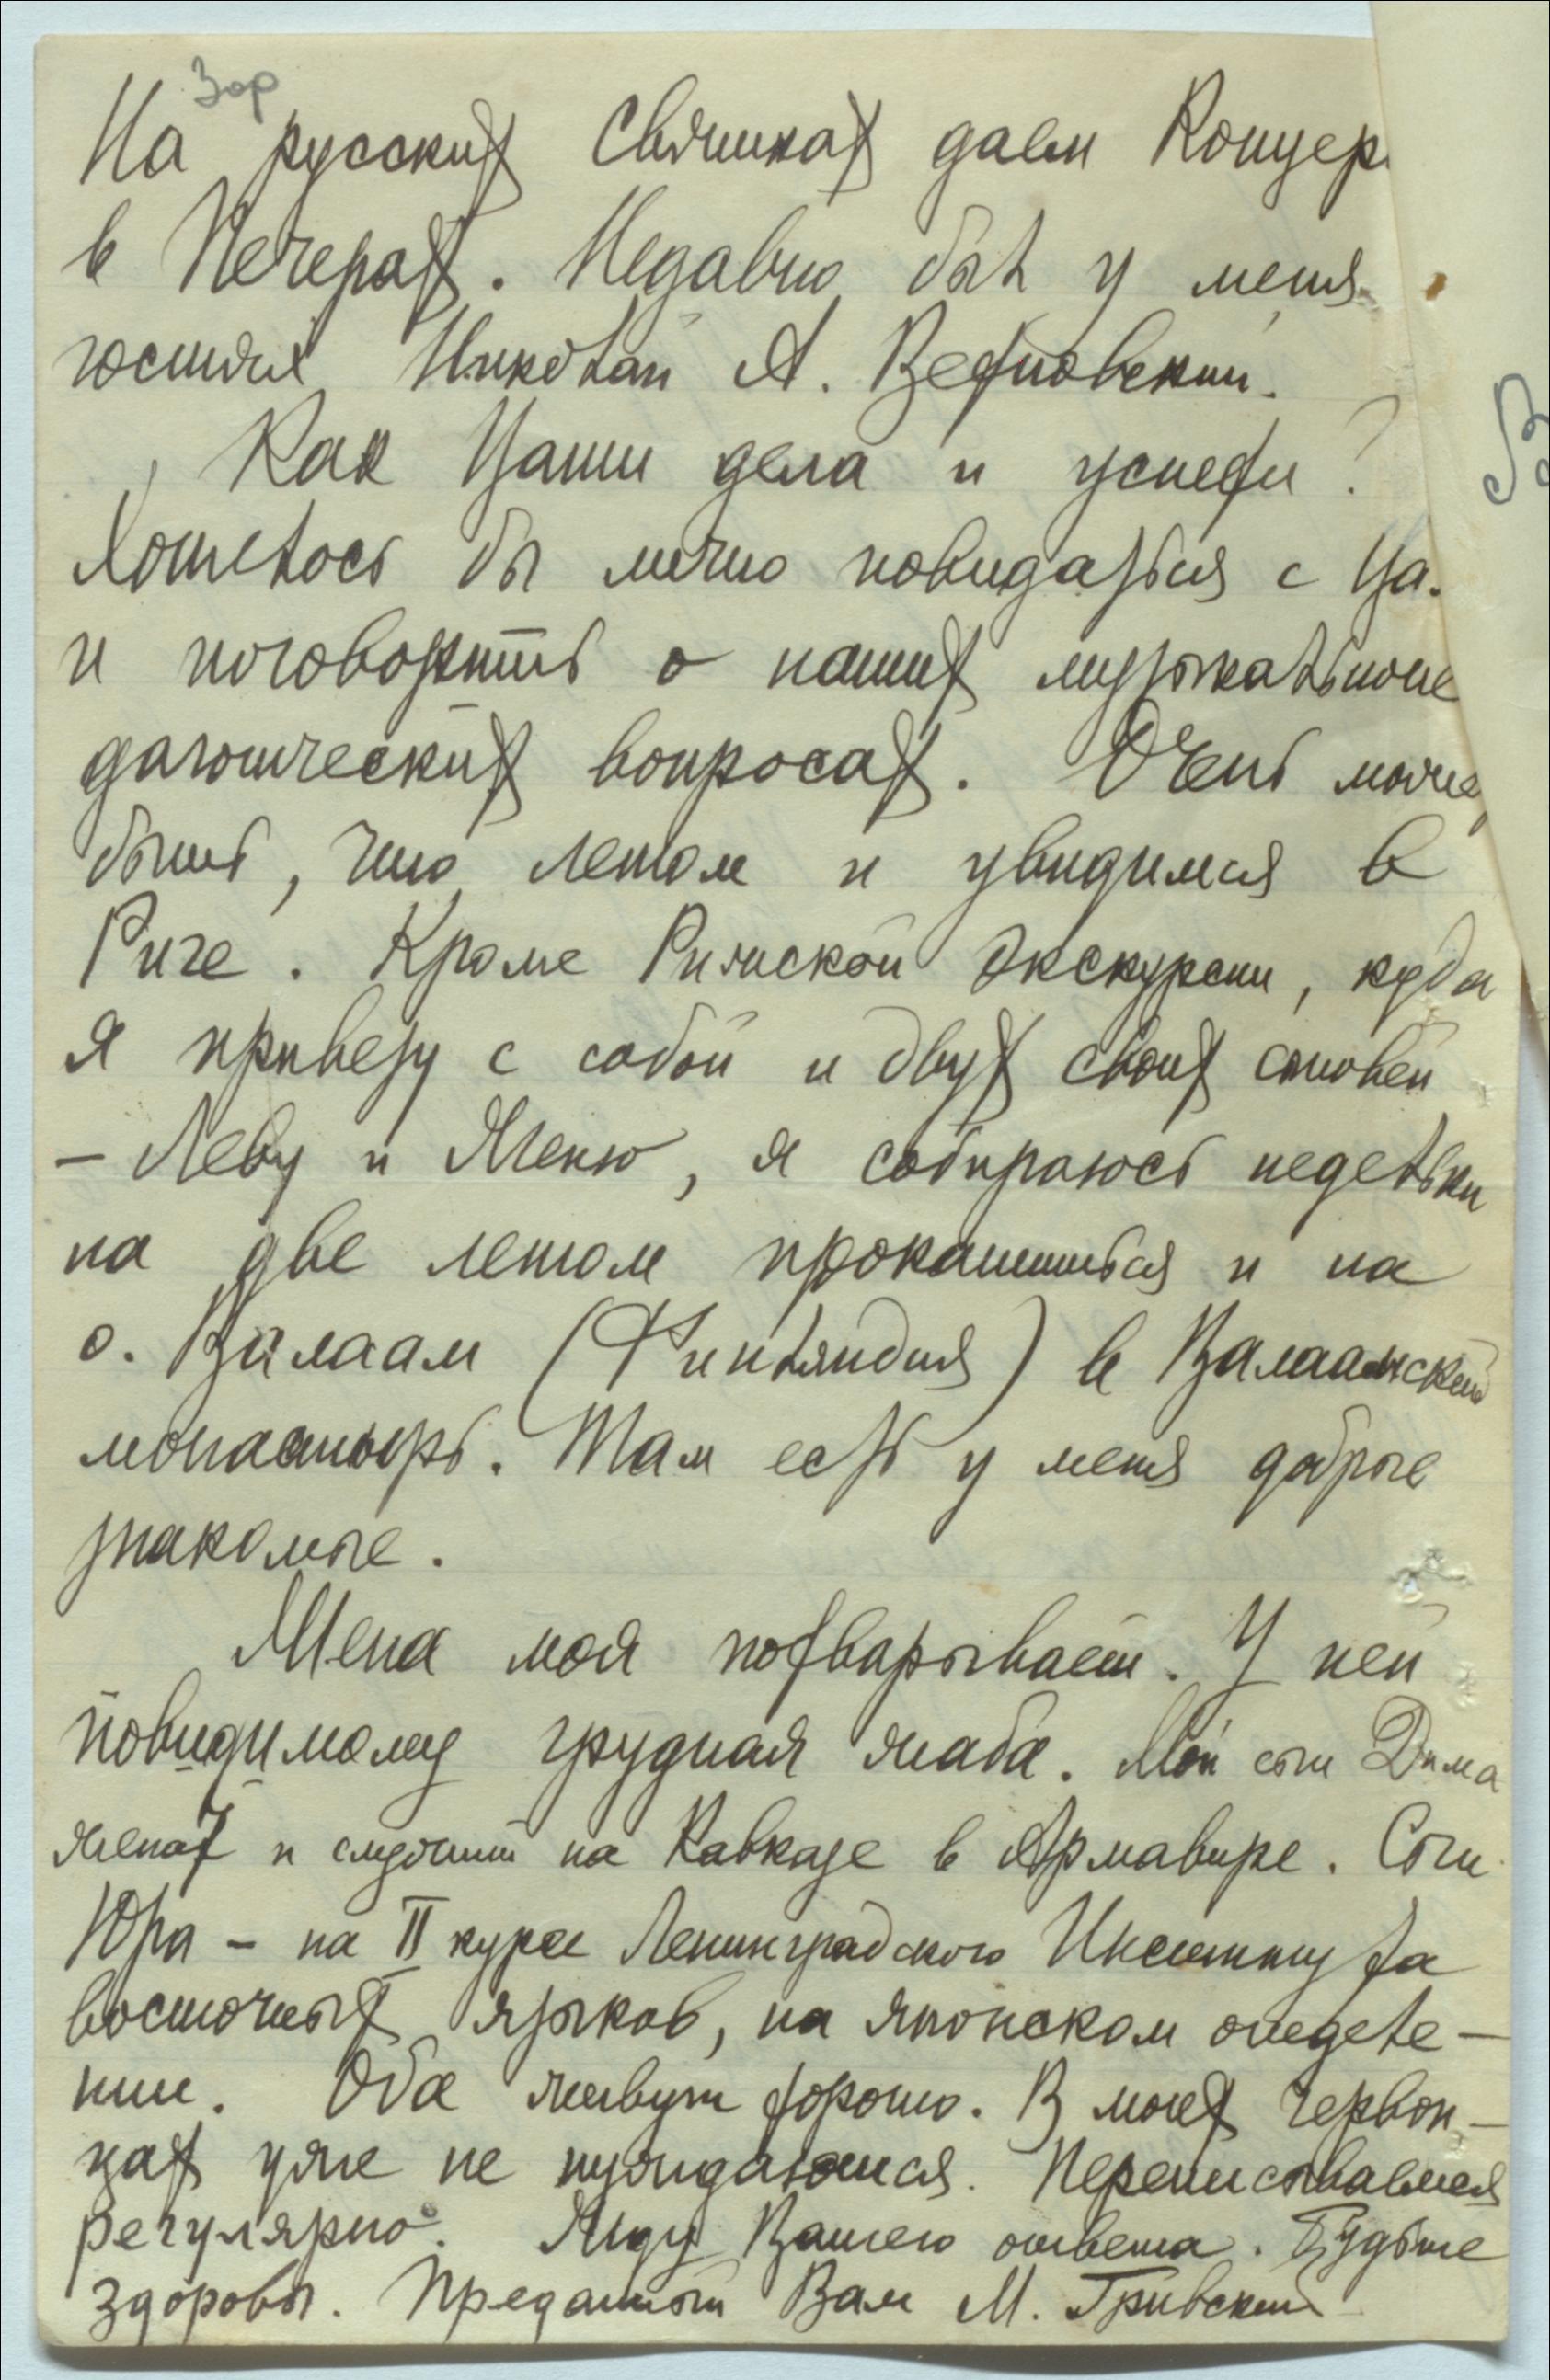 Зор
На русских Святках даем Концер
в Печерах. Недавно был у меня
гостях Николай А. Верховский.
Как Ваши дела и успехи?
Хотелось бы лично повидаться с Ва
и поговорить о наших музыкальнопе
дагогических вопросах. Очень може
быть, что летом и увидимся в
Риге. Кроме Рижской экскурсии, куда
я привезу с собой и двух своих сыновей
– Леву и Женю, я собираюсь недельки
на две летом прокатиться и на
о. Валаам (Финляндия) в Валаамский
монастырь. Там есть у меня добрые
знакомые.
Жена моя похварывает. У ней
повидимому грудная жаба. Мой сын Дима
женат и служит на Кавказе в Армавире. Сын
Юра – на II курсе Ленинградского Института
восточных языков, на японском отделе–
нии. Оба живут хорошо. В моих червон–
цах уже не нуждаются. Переписываемся
регулярно. Жду Вашего ответа. Будьте
здоровы. Преданный Вам М. Гривский